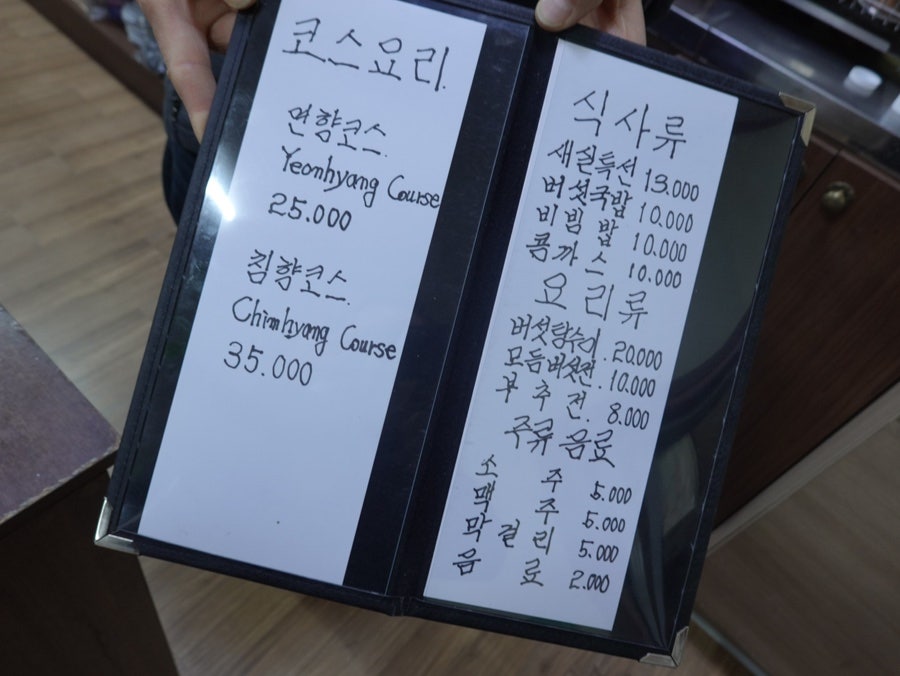 코스요리.
연향코스.
Yeonhyang Course
25.000
침향코스.
Chimhyang Course
35.000
식사류
새싹특선 13.000
버섯국밥 10.000
비빔밥 10.000
콩까스 10.000
요리류
버섯탕수이. 20.000
모듬버섯전. 10.000
부추전. 8.000
주류 음료
소주 5.000
맥주 5.000
막걸리 5.000
음료 2.000